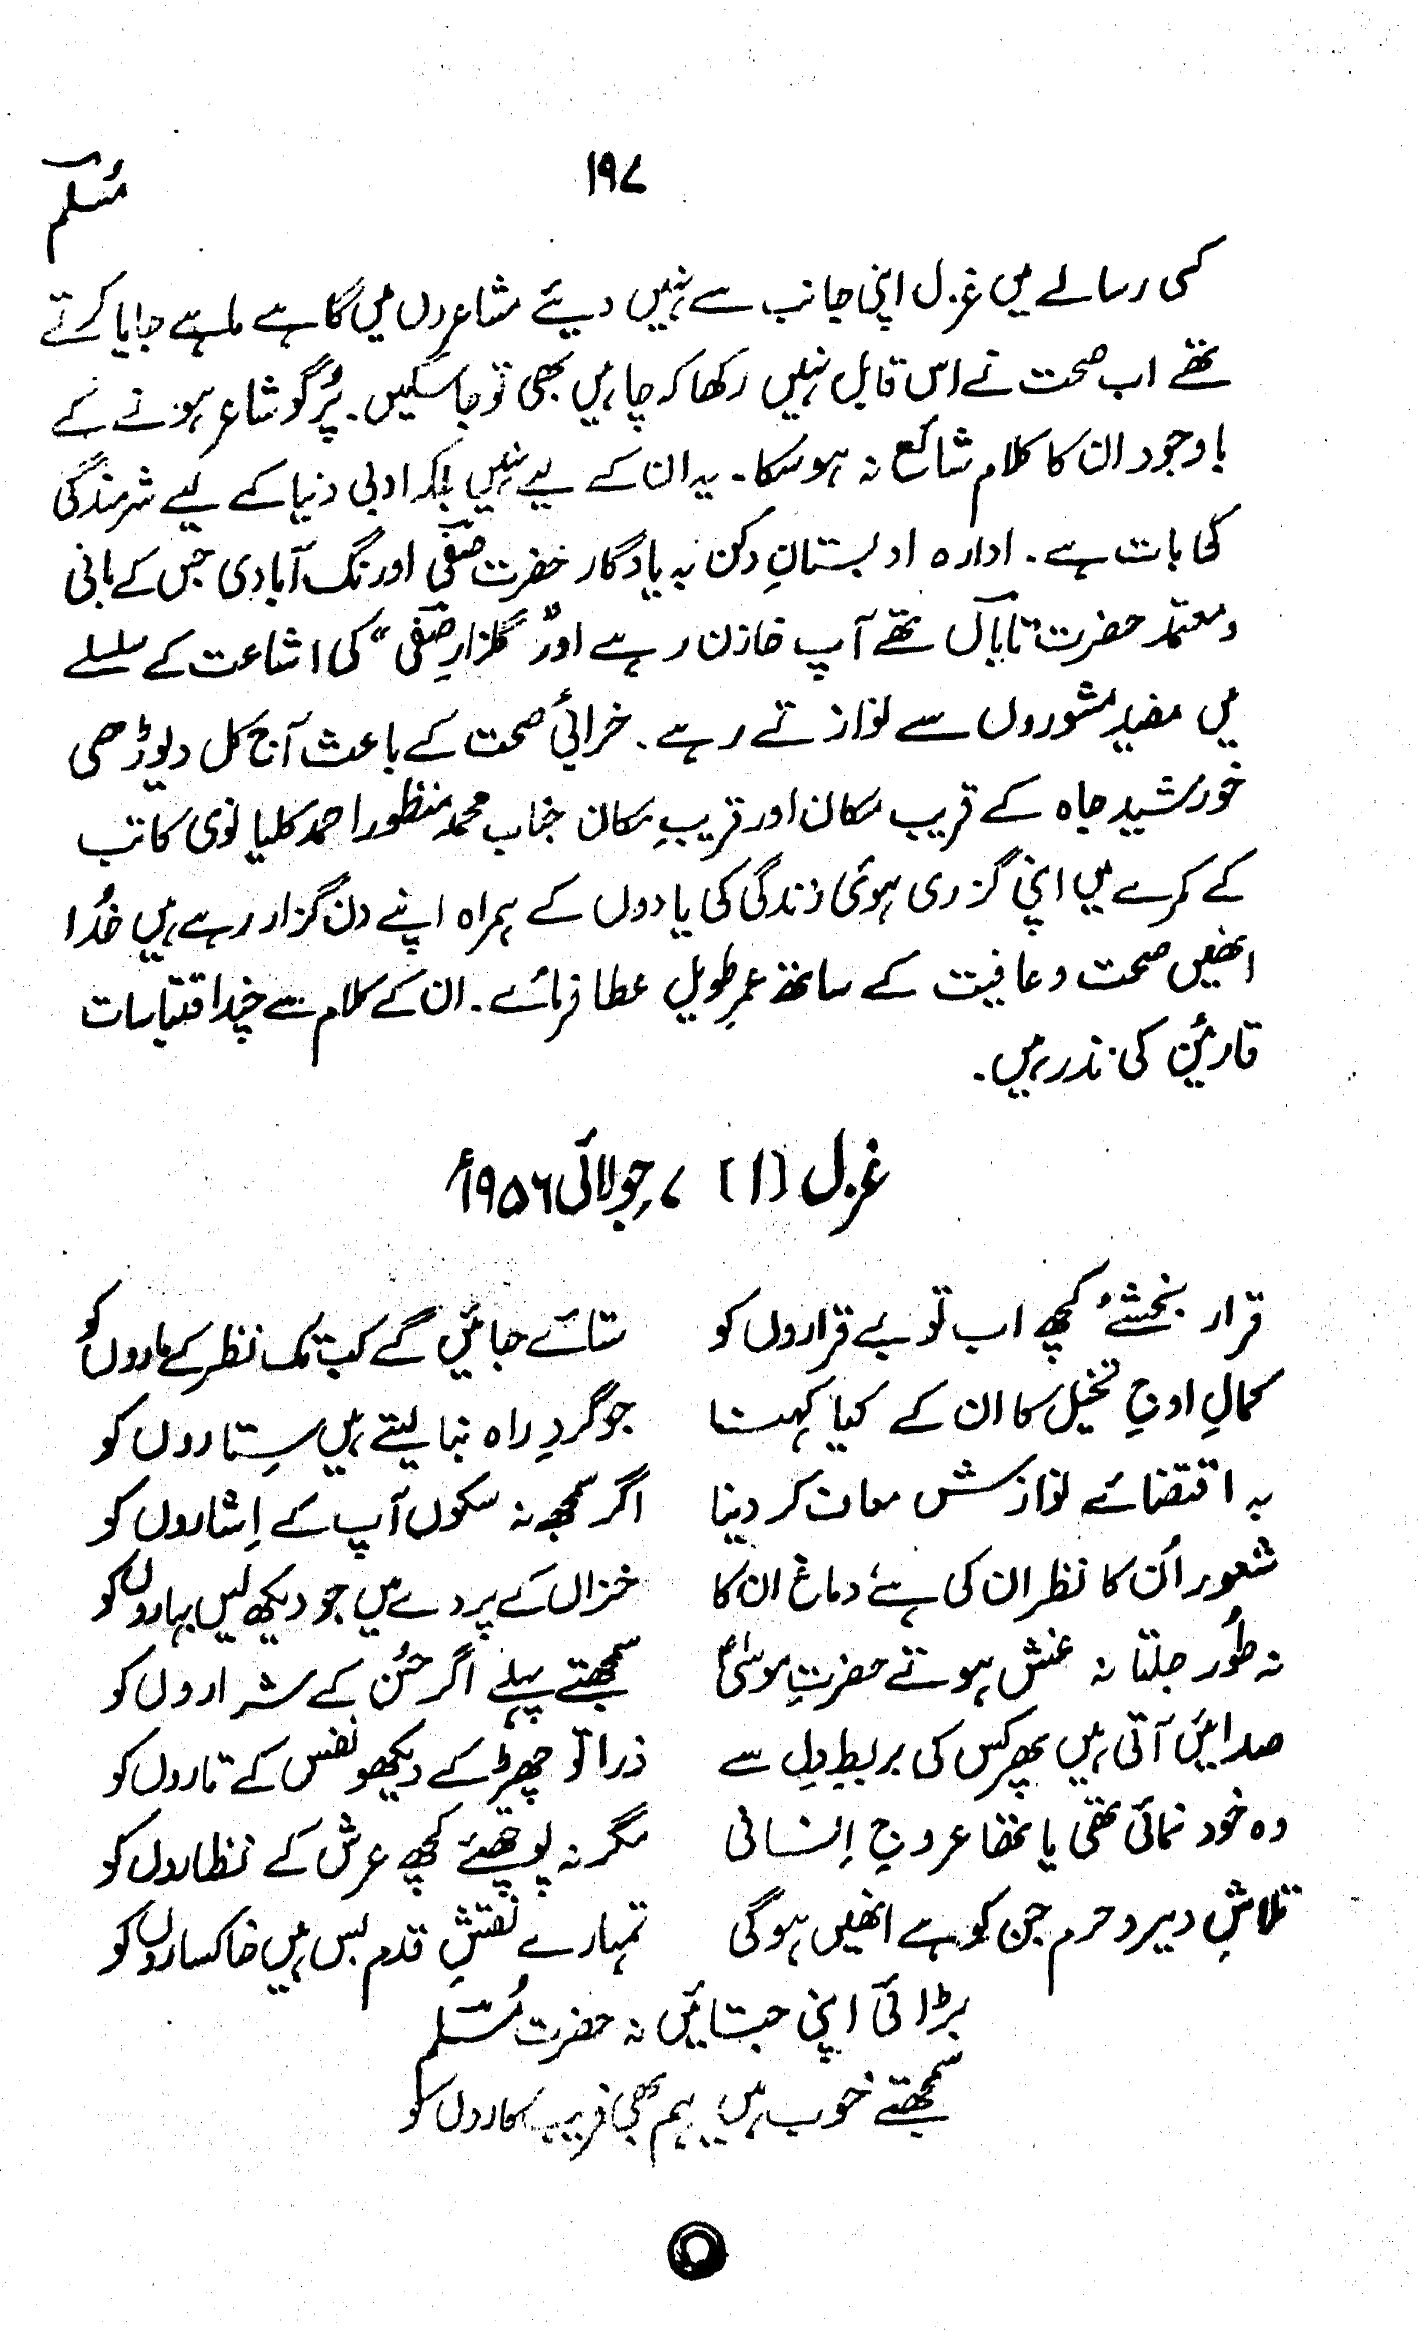 ۱۹۷
مُسلم
کسی رسالے میں غزل اپنی جانب سے نہیں دیئے مشاعروں میں گاہے ماہے جایا کرتے
تھے اب صحت نے اس قابل نہیں رکھا کہ چاہیں بھی تو جا سکیں۔ پُرگو شاعر ہونے کے
باوجود ان کا کلام شائع نہ ہوسکا۔ یہ ان کے لیے نہیں بلکہ ادبی دنیا کے لیے شرمندگی
کی بات ہے۔ ادارہ ادبستانِ دکن بہ یادگار حضرت صفیؔ اورنگ آبادی جس کے بانی
و معتمد حضرت تاباںؔ تھے آپ خازن رہے اور "گلزارِ صفیؔ" کی اشاعت کے سلسلے
میں مفید مشوروں سے نوازتے رہے۔ خرابیٔ صحت کے باعث آج کل دیوڑھی
خورشید جاہ کے قریب مکان اور قریبِ مکان جناب محمد منظور احمد کلیانوی کاتب
کے کمرے میں اپنی گزری ہوئی زندگی کی یادوں کے ہمراہ اپنے دن گزار رہے ہیں خُدا
انھیں صحت و عافیت کے ساتھ عمرِ طویل عطا فرمائے۔ ان کے کلام سے چند اقتباسات
قارئین کی نذر ہیں۔
غزل (۱) ۷؍جولائی ۱۹۵۶ء
قرار بخشئے کچھ اب تو بے قراروں کو ستائے جائیں گے کب تک نظر کے ماروں کو
کمالِ اوجِ تخیل کا ان کے کیا کہنا جو گردِ راہ بنا لیتے ہیں سِتاروں کو
بہ اقتضائے نوازش معاف کر دینا اگر سمجھ نہ سکوں آپ کے اِشاروں کو
شعور اُن کا نظر ان کی ہے دماغ ان کا خزاں کے پردے میں جو دیکھ لیں بہاروں کو
نہ طُور جلتا نہ غش ہوتے حضرتِ موسیٰؑ سمجھتے پہلے اگر حُسن کے شراروں کو
صدائیں آتی ہیں پھر کس کی بربطِ دِل سے ذرا تو چھیڑ کے دیکھو نفس کے تاروں کو
وہ خود نمائی تھی یا تھا عروجِ اِنسانی مگر نہ پوچھئے کچھ عرش کے نظاروں کو
تلاشِ دیر و حرم جن کو ہے انھیں ہوگی تمہارے نقشِ قدم بس ہیں خاکساروں کو
بڑائی اپنی جتائیں نہ حضرت مُسلمؔ
سمجھتے خوب ہیں ہم بھی فریب کاروں کو